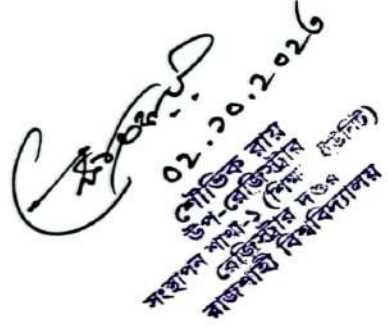 ০২.১০.২০২৬
শৌভিক রায়
উপ-রেজিস্ট্রার
সংস্থাপন শাখা-১ (শিক্ষক ইউনিট)
রেজিস্ট্রার দপ্তর
রাজশাহী বিশ্ববিদ্যালয়